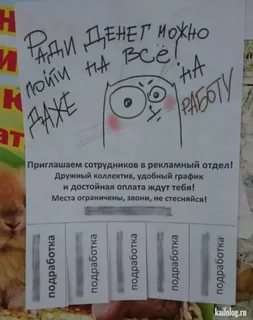 РАДИ ДЕНЕГ МОЖНО
ПОЙТИ НА ВСЁ,
ДАЖЕ НА
РАБОТУ
Приглашаем сотрудников в рекламный отдел!
Дружный коллектив, удобный график
и достойная оплата ждут тебя!
Места ограничены, звони, не стесняйся!
подработка
подработка
подработка
подработка
подработка
kaifolog.ru